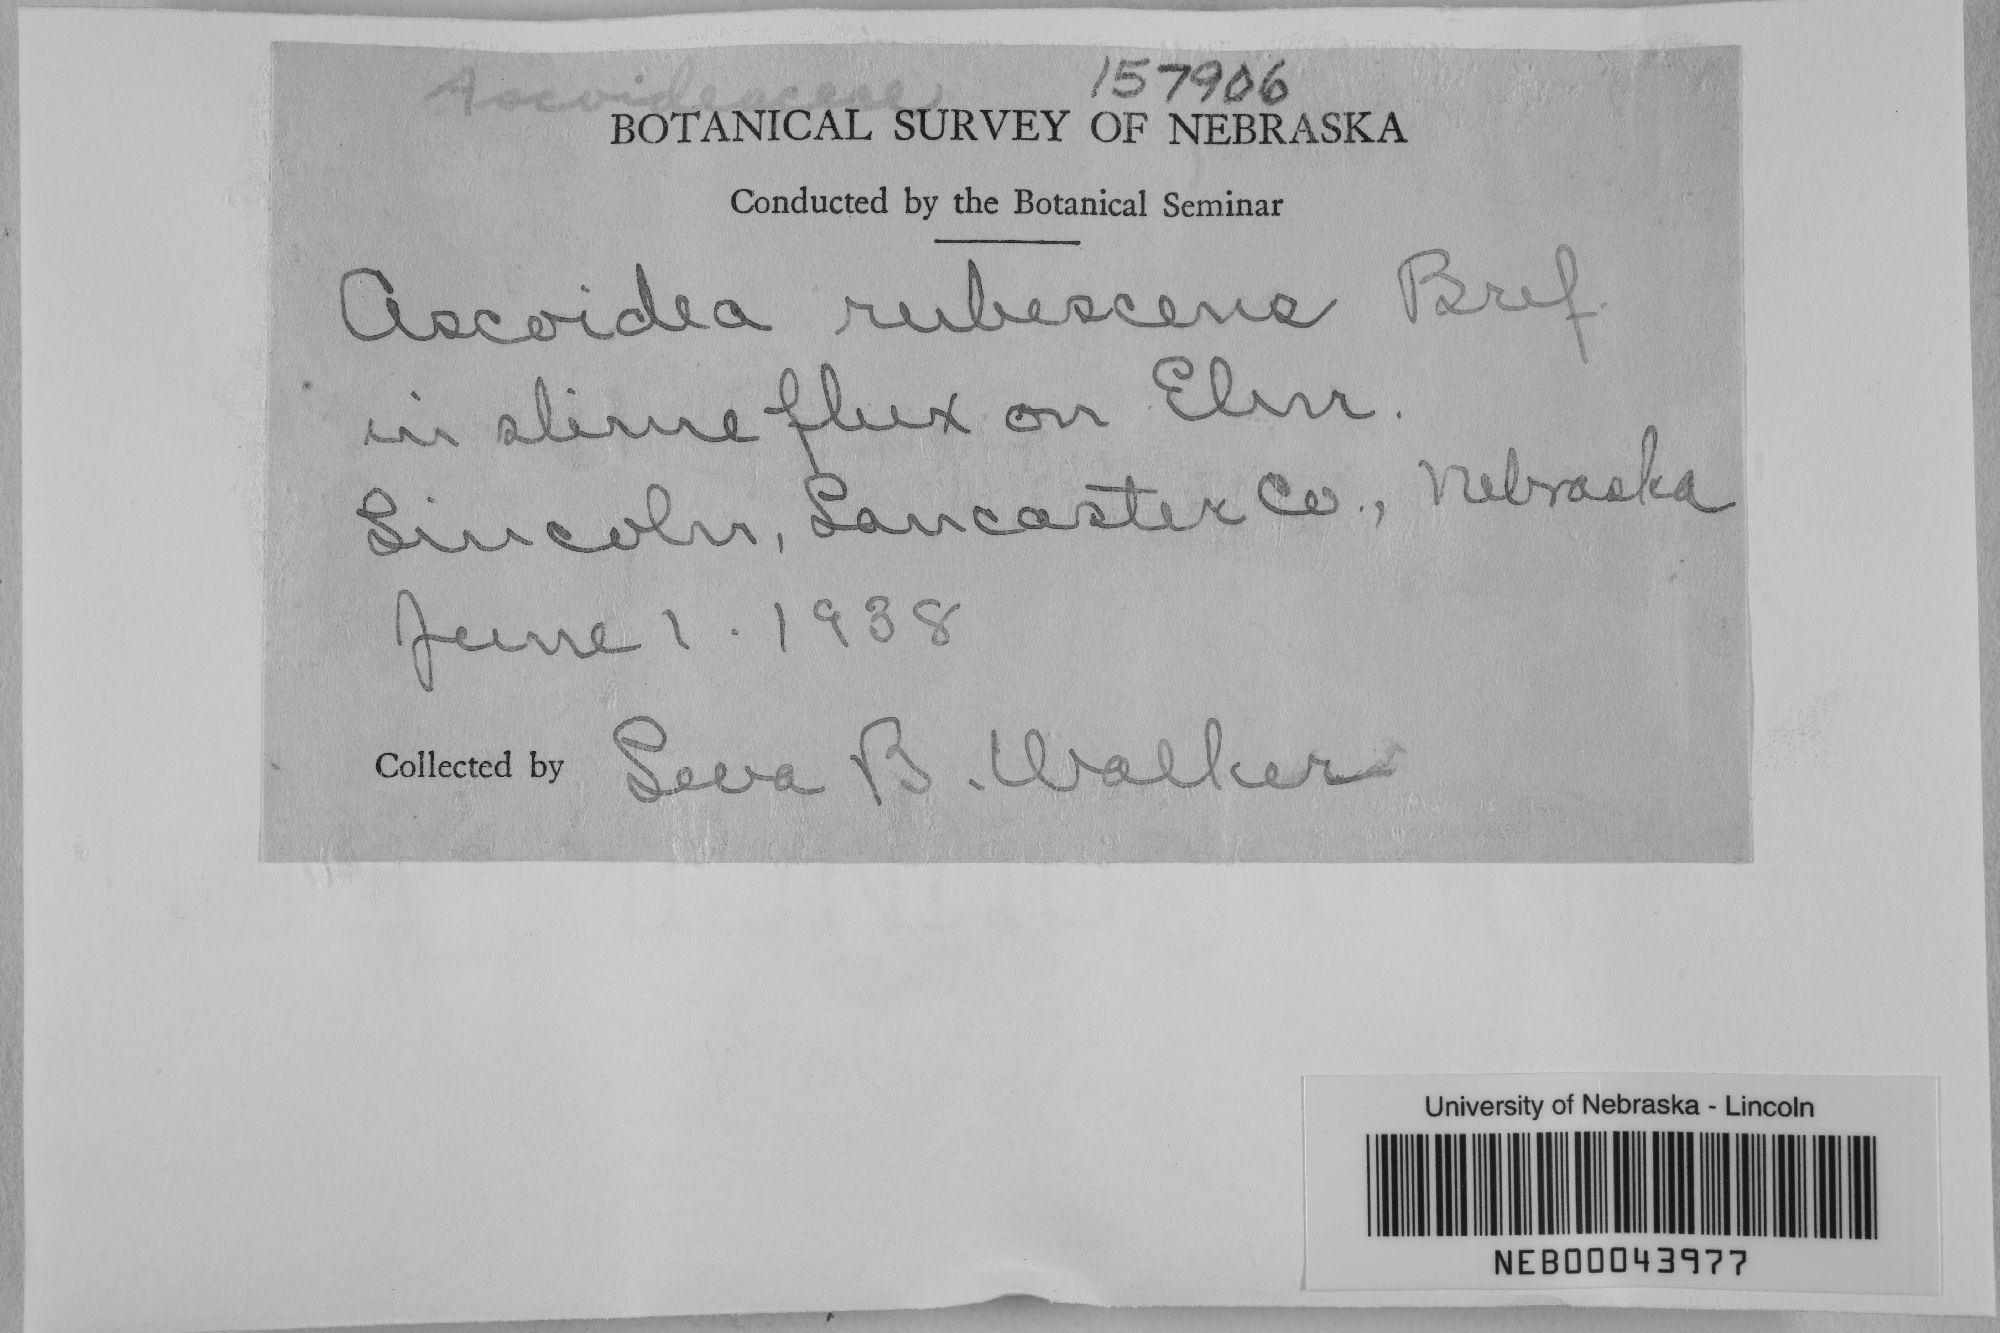 Ascoideaceae 157906
BOTANICAL SURVEY OF NEBRASKA
Conducted by the Botanical Seminar
Ascoidea rubescens Bref.
in slime flux on Elm.
Lincoln, Lancaster Co., Nebraska
June 1. 1938
Collected by Leva B. Walker
University of Nebraska - Lincoln
NEB00043977